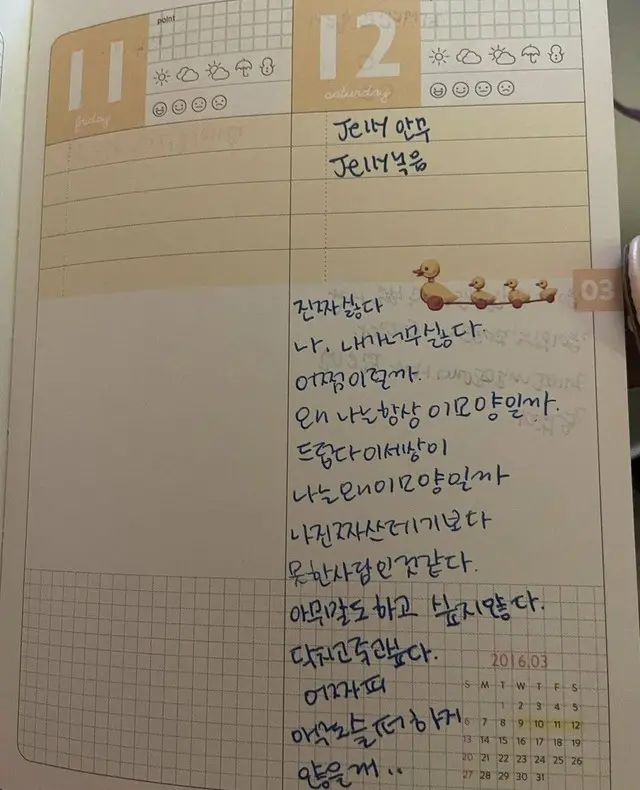 point
11
friday
12
saturday
Jelly 안무
Jelly 녹음
03
진짜싫다
나. 내가너무싫다.
어쩜이럴까.
왜 나는항상 이모양일까.
드럽다이세상이
나는왜이모양일까
나진짜쓰레기보다
못한사람인것같다.
아무말도 하고 싶지않다.
닥치고죽고싶다.
어짜피
아무도슬퍼하지
않을걸..
2016.03
S M T W T F S
1 2 3 4 5
6 7 8 9 10 11 12
13 14 15 16 17 18 19
20 21 22 23 24 25 26
27 28 29 30 31